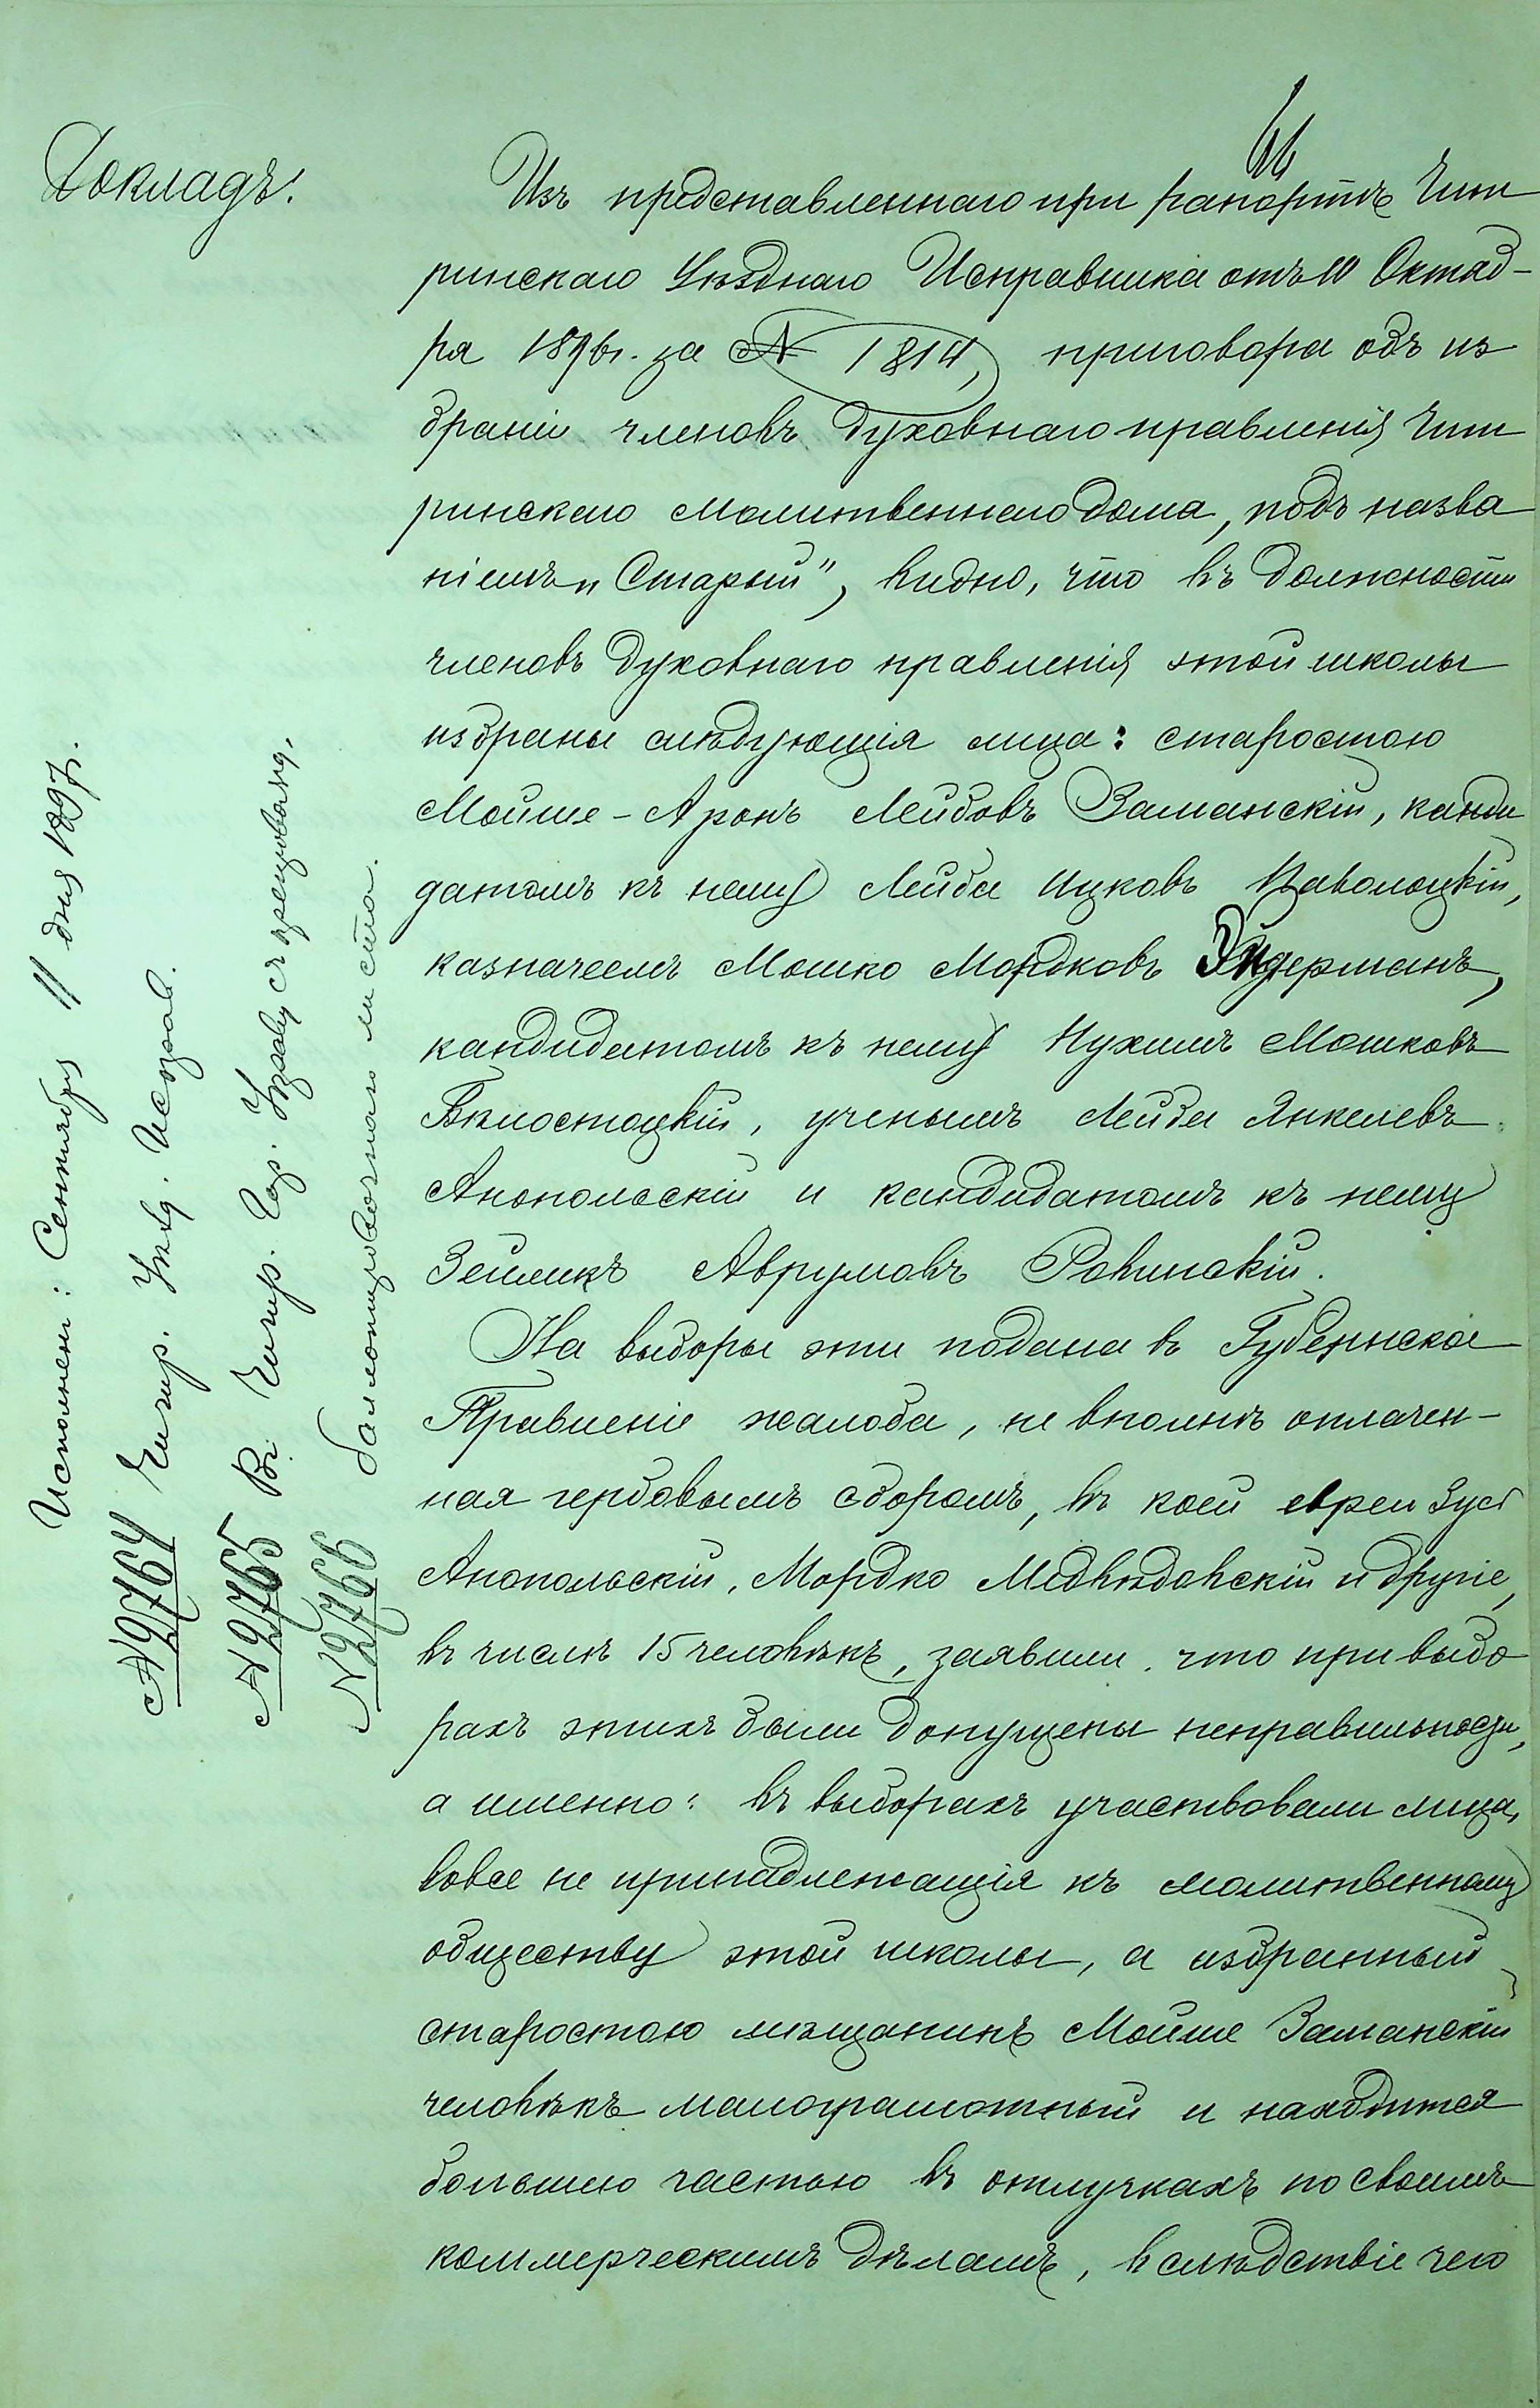 Докладъ.
Изъ представленнаго при рапортѣ Чиги
ринскаго Уѣзднаго Исправника отъ 10 Октяб-
ря 1896 г. за № 1814, приговора объ из
браніи членовъ духовнаго правленія Чиги
ринскаго Молитвеннаго дома, подъ назва
ніемъ „Старый", видно, что въ должности
членовъ духовнаго правленія этой школы
избраны слѣдующія лица: старостою
Мойше-Аронъ Лейбовъ Заманскій, канди
датомъ къ нему Лейба Ицковъ Паволоцкій,
казначеемъ Мошко Мордковъ
кандидатомъ къ нему Нухимъ Мошковъ
Бѣлостоцкій, ученымъ Лейба Янкелевъ
Анопольскій и кандидатомъ къ нему
Зейликъ Аврумовъ Ровинскій.
На выборы эти подана въ Губернское
Правленіе жалоба, не вполнѣ оплачен-
ная гербовымъ сборомъ, въ коей евреи Зусь
Анопольскій, Мордко Медвѣдовскій и другіе,
въ числѣ 15 человѣкъ, заявили, что при выбо
рахъ этихъ были допущены неправильности,
а именно: въ выборахъ участвовали лица,
вовсе не принадлежащія къ молитвенному
обществу этой школы, а избранный
старостою мѣщанинъ Мойше Заманскій
человѣкъ малограмотный и находится
большею частью въ отлучкахъ по своимъ
коммерческимъ дѣламъ, вслѣдствіе чего
Исполнен: Сентября 11 дня 1897 г.
№ 2764 Чигир. Уѣзд. Исправ.
№ 2765 Въ Чигир. Гор. Управу съ препровожд.
№ 2766 баллотировочнаго листа.